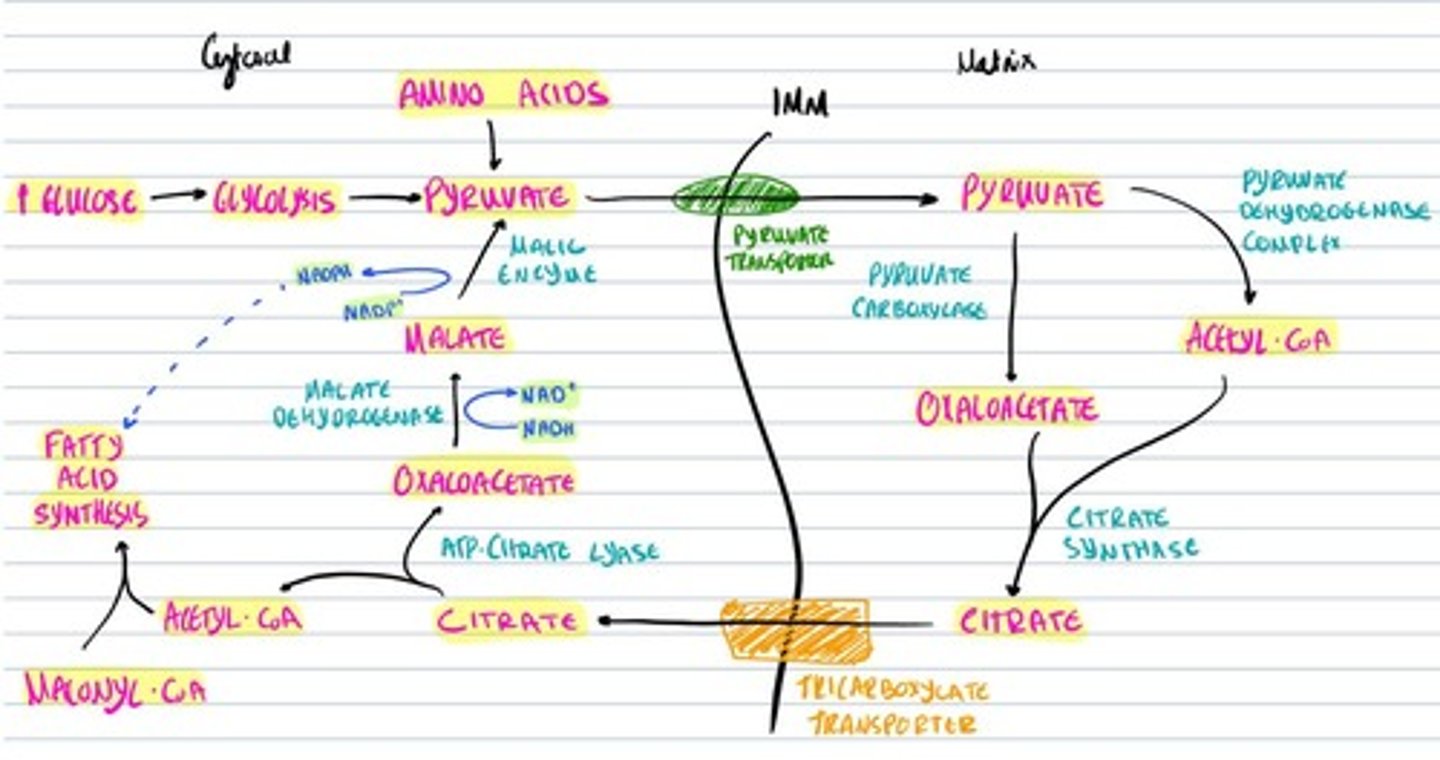 Cytosol
Matrix
AMINO ACIDS
IMM
↑ GLUCOSE
GLYCOLYSIS
PYRUVATE
PYRUVATE
PYRUVATE
DEHYDROGENASE
COMPLEX
MALIC
ENZYME
PYRUVATE
TRANSPORTER
NADPH
NADP+
PYRUVATE
CARBOXYLASE
MALATE
ACETYL·CoA
MALATE
DEHYDROGENASE
NAD+
NADH
OXALOACETATE
FATTY
ACID
SYNTHESIS
OXALOACETATE
ATP·CITRATE LYASE
CITRATE
SYNTHASE
ACETYL·CoA
CITRATE
CITRATE
MALONYL·CoA
TRICARBOXYLATE
TRANSPORTER